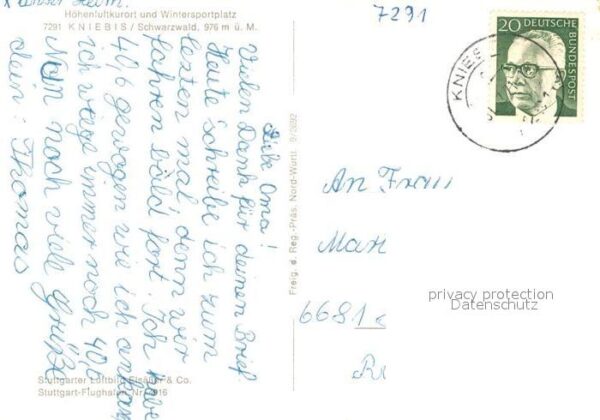 x Unser Heim.
Höhenluftkurort und Wintersportplatz
7291 KNIEBIS / Schwarzwald, 976 m ü. M.
Liebe Oma!
Vielen Dank für deinen Brief
Heute schreibe ich zum
letzten mal denn wir
fahren bald fort. Ich habe
40,6 gewogen wie ich ankam
ich wiege immer noch 40,6
Nun noch viele Grüße
dein: Thomas
Stuttgarter Luftbild Elsäßer & Co.
Stuttgart-Flughafen
Freig. d. Reg.-Präs. Nord-Württ.
7291
20 DEUTSCHE BUNDESPOST
KNIEBIS
An Frau
6681
privacy protection
Datenschutz